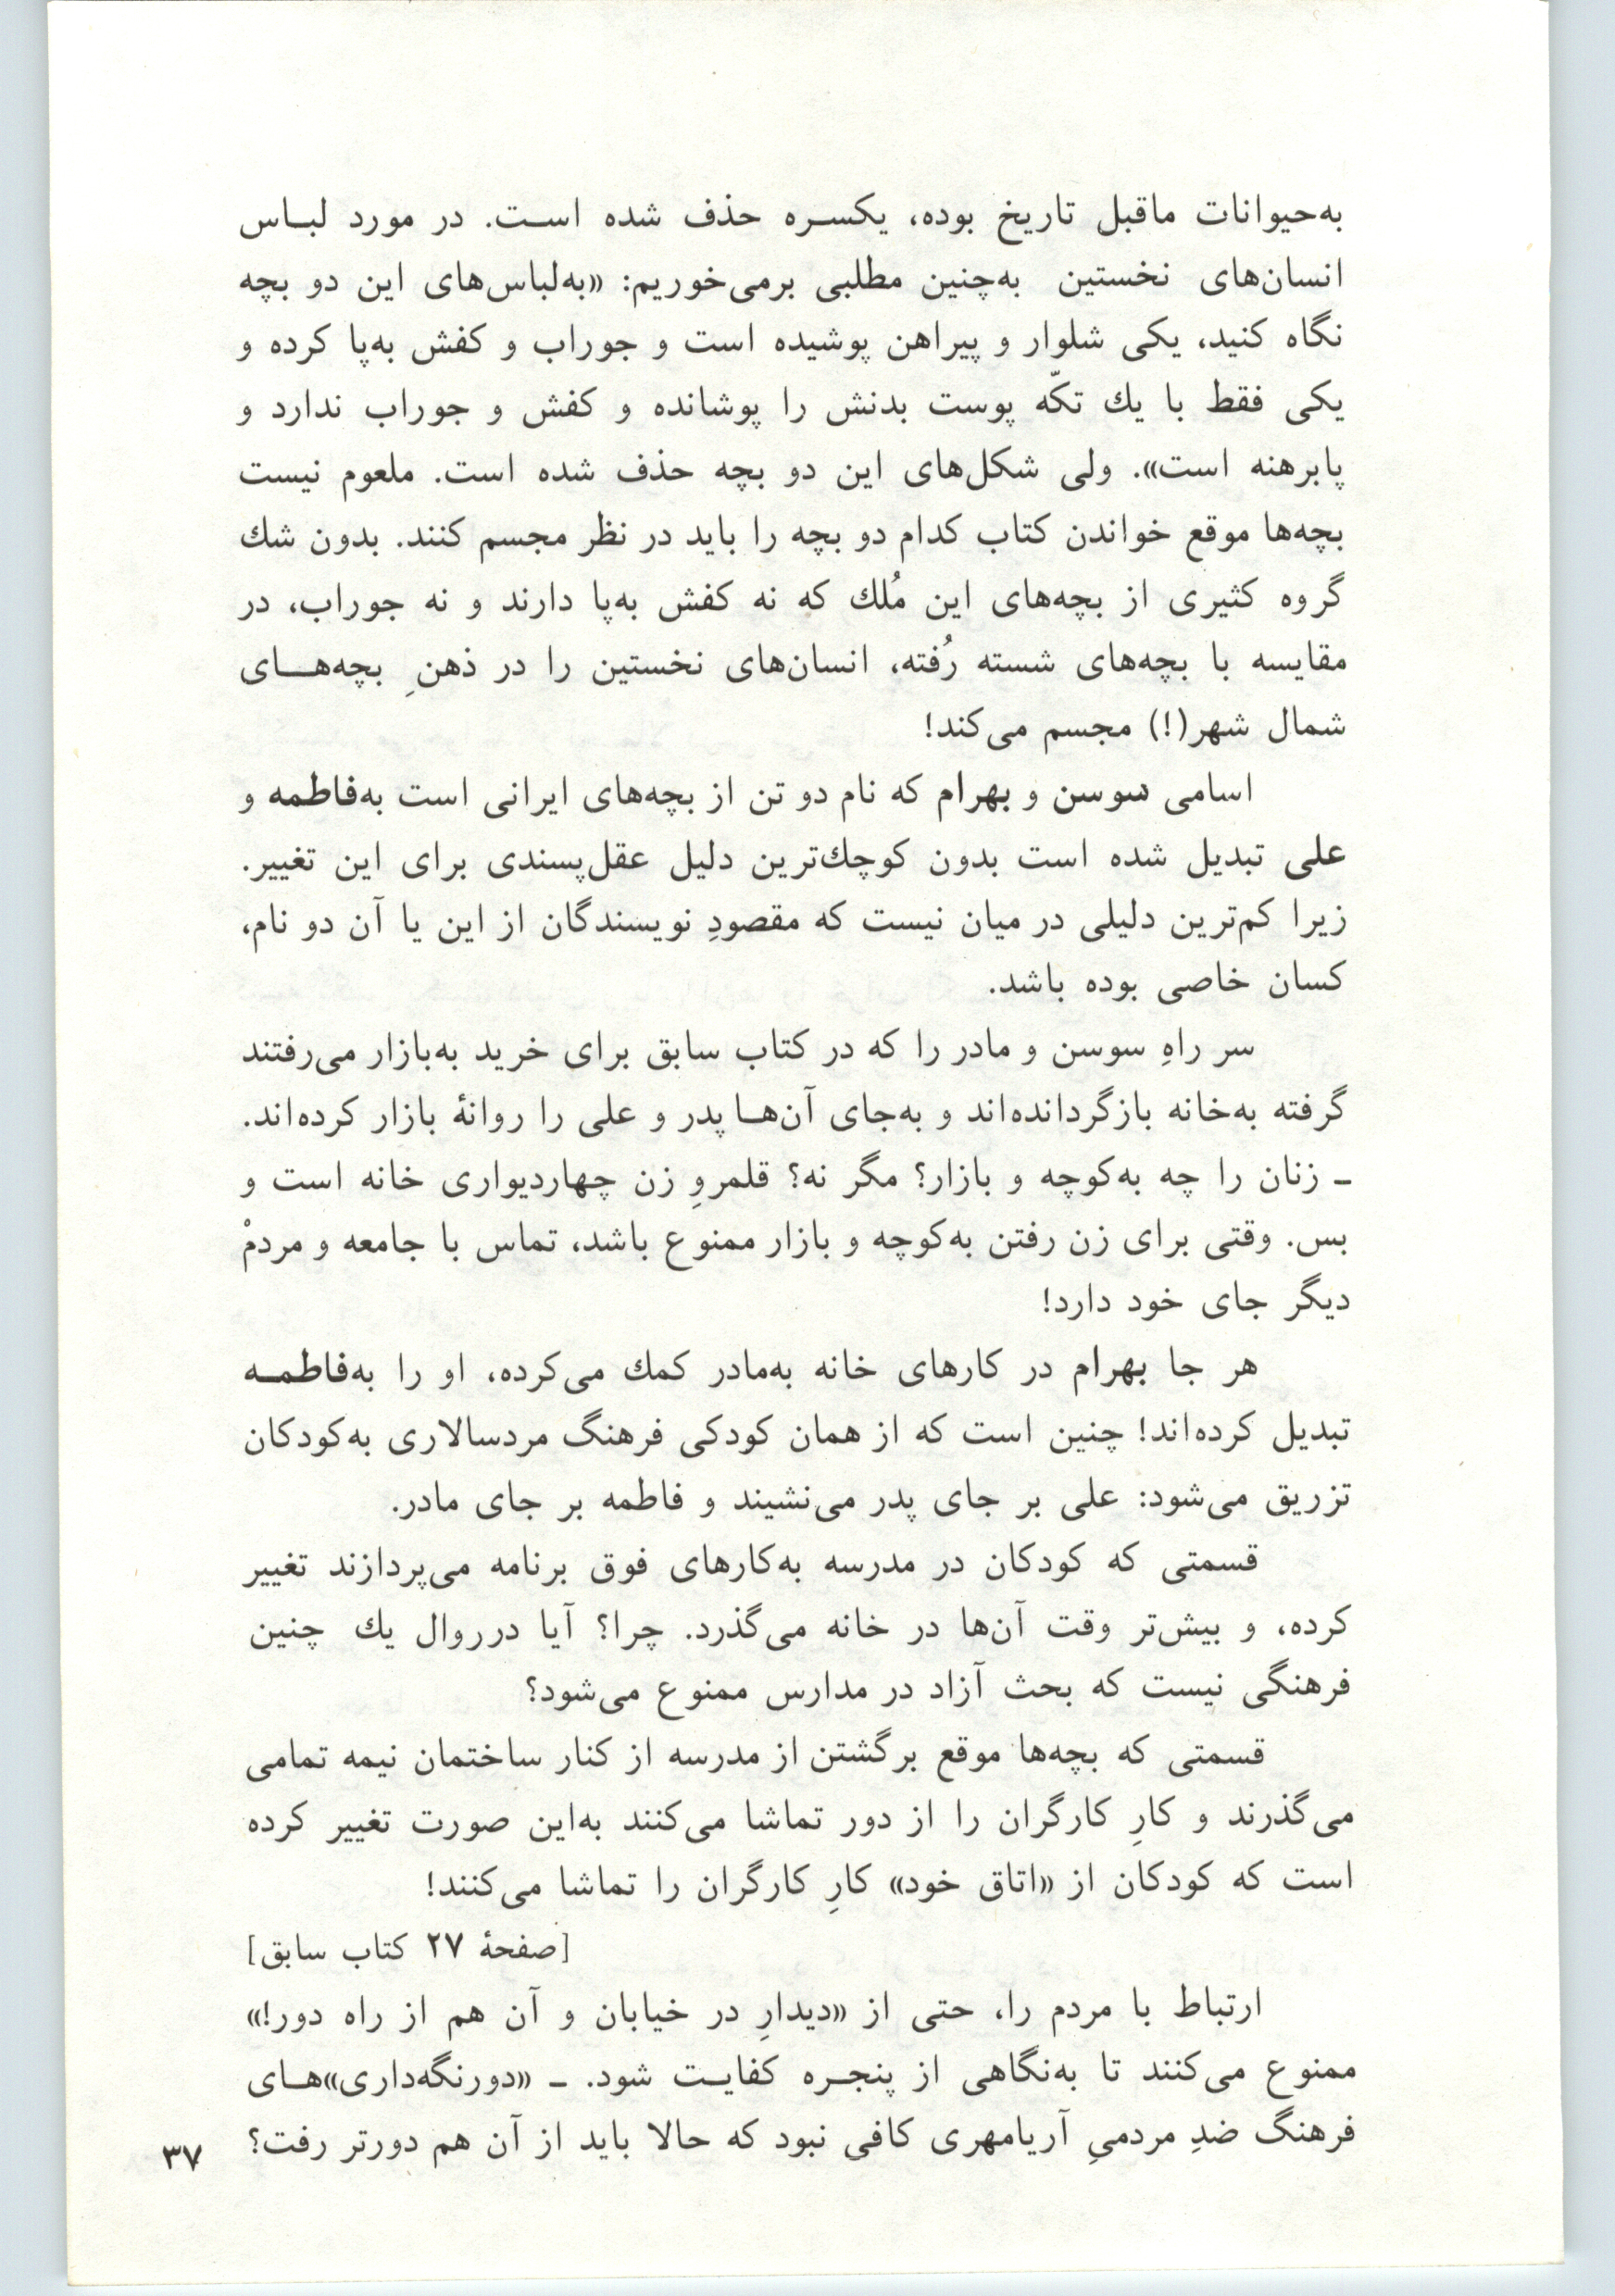 به‌حیوانات ماقبل تاریخ بوده، یکسـره حذف شده اسـت. در مورد لبـاس
انسان‌های نخستین به‌چنین مطلبی برمی‌خوریم: «به‌لباس‌های این دو بچه
نگاه کنید، یکی شلوار و پیراهن پوشیده است و جوراب و کفش به‌پا کرده و
یکی فقط با یك تکّه پوست بدنش را پوشانده و کفش و جوراب ندارد و
پابرهنه است». ولی شکل‌های این دو بچه حذف شده است. ملعوم نیست
بچه‌ها موقع خواندن کتاب کدام دو بچه را باید در نظر مجسم کنند. بدون شك
گروه کثیری از بچه‌های این مُلك که نه کفش به‌پا دارند و نه جوراب، در
مقایسه با بچه‌های شسته رُفته، انسان‌های نخستین را در ذهنِ بچه‌هـای
شمال شهر(!) مجسم می‌کند!
اسامی سوسن و بهرام که نام دو تن از بچه‌های ایرانی است به‌فاطمه و
علی تبدیل شده است بدون کوچك‌ترین دلیل عقل‌پسندی برای این تغییر.
زیرا کم‌ترین دلیلی در میان نیست که مقصودِ نویسندگان از این یا آن دو نام،
کسان خاصی بوده باشد.
سر راهِ سوسن و مادر را که در کتاب سابق برای خرید به‌بازار می‌رفتند
گرفته به‌خانه بازگردانده‌اند و به‌جای آن‌هـا پدر و علی را روانهٔ بازار کرده‌اند.
ـ زنان را چه به‌کوچه و بازار؟ مگر نه؟ قلمروِ زن چهاردیواری خانه است و
بس. وقتی برای زن رفتن به‌کوچه و بازار ممنوع باشد، تماس با جامعه و مردمْ
دیگر جای خود دارد!
هر جا بهرام در کارهای خانه به‌مادر کمك می‌کرده، او را به‌فاطمـه
تبدیل کرده‌اند! چنین است که از همان کودکی فرهنگ مردسالاری به‌کودکان
تزریق می‌شود: علی بر جای پدر می‌نشیند و فاطمه بر جای مادر.
قسمتی که کودکان در مدرسه به‌کارهای فوق برنامه می‌پردازند تغییر
کرده، و بیش‌تر وقت آن‌ها در خانه می‌گذرد. چرا؟ آیا درروال یك چنین
فرهنگی نیست که بحث آزاد در مدارس ممنوع می‌شود؟
قسمتی که بچه‌ها موقع برگشتن از مدرسه از کنار ساختمان نیمه تمامی
می‌گذرند و کارِ کارگران را از دور تماشا می‌کنند به‌این صورت تغییر کرده
است که کودکان از «اتاق خود» کارِ کارگران را تماشا می‌کنند!
[صفحهٔ ۲۷ کتاب سابق]
ارتباط با مردم را، حتی از «دیدارِ در خیابان و آن هم از راه دور!»
ممنوع می‌کنند تا به‌نگاهی از پنجـره کفایـت شود. ـ «دورنگه‌داری»هـای
فرهنگ ضدِ مردميِ آریامهری کافی نبود که حالا باید از آن هم دورتر رفت؟
۳۷